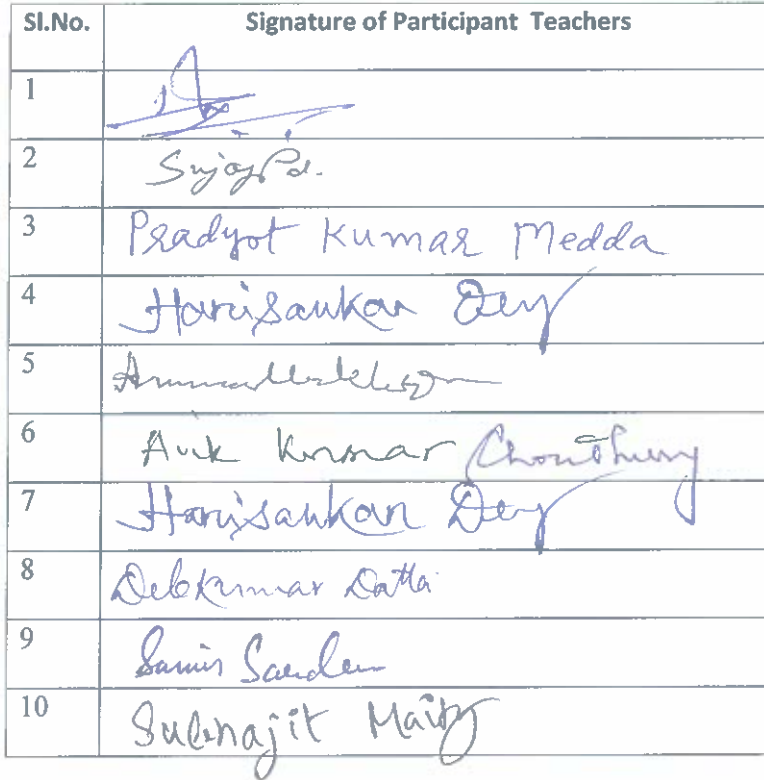 Sl.No. Signature of Participant Teachers
1
2 Sujoy Pd.
3 Pradyot Kumar Medda
4 Harisankar Dey
5
6 Avik Kumar Choudhury
7 Harisankar Dey
8 Debkumar Datta
9 Samir Sarder
10 Subhajit Maity